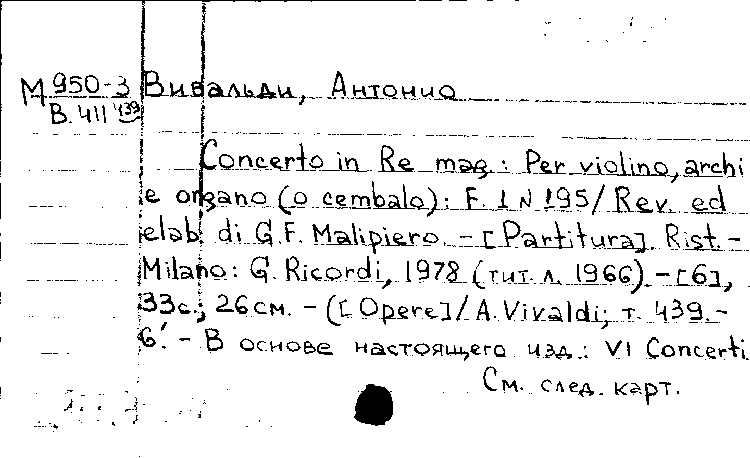 М 950-3 Вивальди, Антонио
В.411 439
Concerto in Re mag.: Per violino, archi
e organo (o cembalo): F. I N 195/ Rev. ed
elab. di G.F. Malipiero. – [Partitura]. Rist. –
Milano: G. Ricordi, 1978 (тит. л. 1966). – [6],
33с.; 26см. – ([Opere]/ A. Vivaldi; т. 439. –
6'. – В основе настоящего изд.: VI Concerti
См. след. карт.